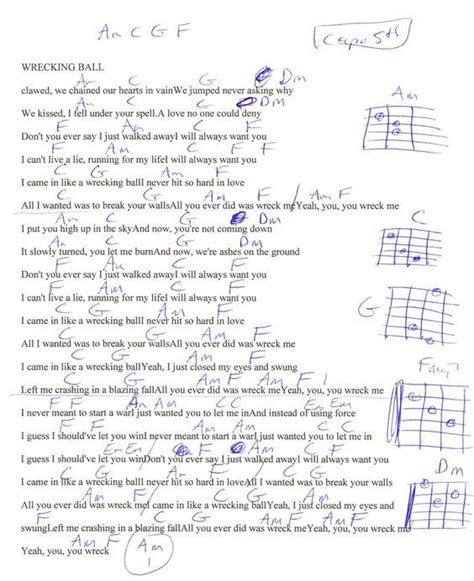 Am C G F
Capo 5th
WRECKING BALL
Am C G Dm
clawed, we chained our hearts in vainWe jumped never asking why
Am C G Dm
We kissed, I fell under your spell.A love no one could deny
F Am C G
Don't you ever say I just walked awayI will always want you
F Am C F F
I can't live a lie, running for my lifeI will always want you
C G Am F
I came in like a wrecking ballI never hit so hard in love
C G Am F / Am F
All I wanted was to break your wallsAll you ever did was wreck meYeah, you, you wreck me
Am C G Dm
I put you high up in the skyAnd now, you're not coming down
Am C G Dm
It slowly turned, you let me burnAnd now, we're ashes on the ground
F Am C G
Don't you ever say I just walked awayI will always want you
F Am C F
I can't live a lie, running for my lifeI will always want you
C G Am F
I came in like a wrecking ballI never hit so hard in love
C G Am F
All I wanted was to break your wallsAll you ever did was wreck me
C G Am F
I came in like a wrecking ballYeah, I just closed my eyes and swung
C G Am F Am F
Left me crashing in a blazing fallAll you ever did was wreck meYeah, you, you wreck me
F F Am Am C C Em Em
I never meant to start a warI just wanted you to let me inAnd instead of using force
F F Am Am C C
I guess I should've let you winI never meant to start a warI just wanted you to let me in
Em Em F Am C G
I guess I should've let you winDon't you ever say I just walked awayI will always want you
C G Am F C G
I came in like a wrecking ballI never hit so hard in loveAll I wanted was to break your walls
Am F C G Am
All you ever did was wreck meI came in like a wrecking ballYeah, I just closed my eyes and
F C G Am F Am F
swungLeft me crashing in a blazing fallAll you ever did was wreck meYeah, you, you wreck me
Am F Am
Yeah, you, you wreck
Am
C
G
Dm